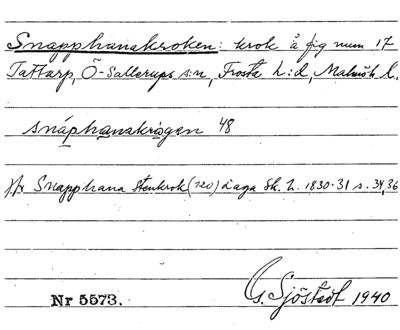 Snapphanakroken: krok å fig num 17
Tattarp, Ö-Sallerups s:n, Frosta h:d, Malmöh l.
snáphanakrogen 48
Snapphana Stenkrok (120) daga Sk. 2. 1830-31 s. 34,36
Nr 5573.
G. Sjöstedt 1940